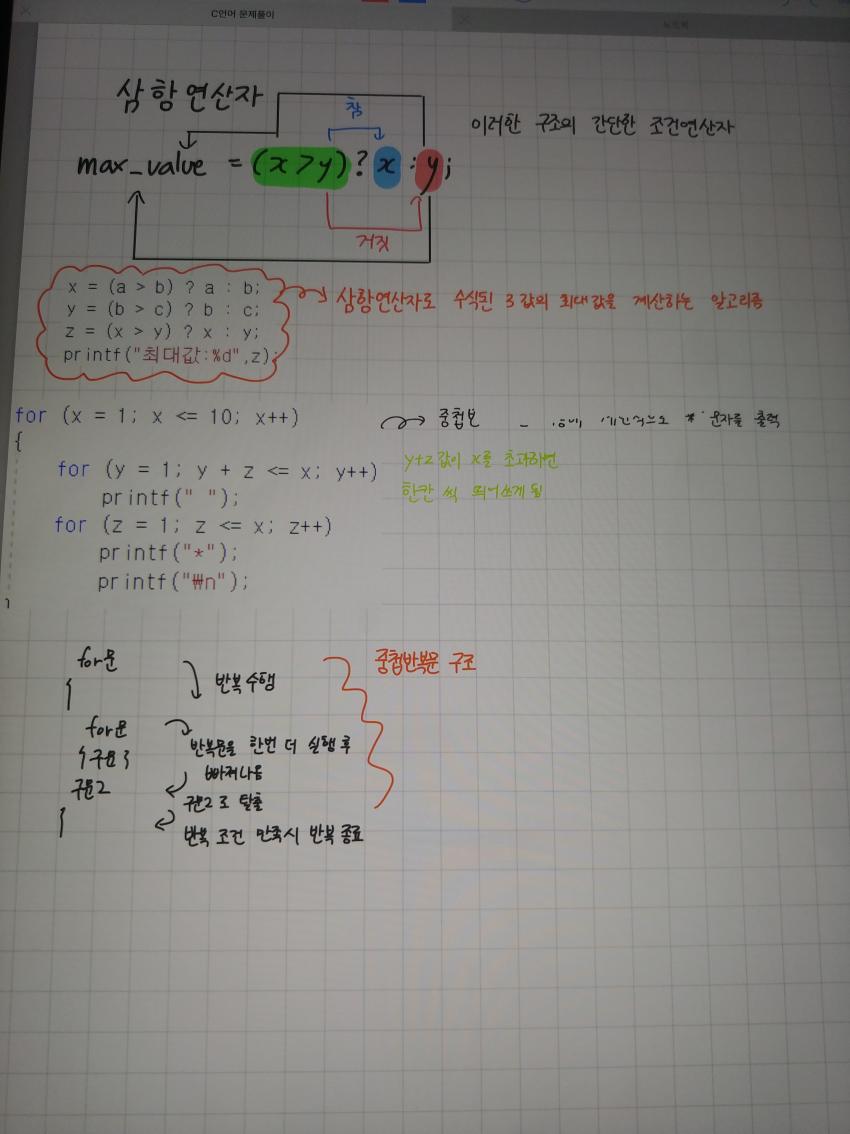 C언어 문제풀이
삼항연산자
참
이러한 구조의 간단한 조건연산자
max_value = (x>y)? x : y;
거짓
x = (a > b) ? a : b;
y = (b > c) ? b : c;
z = (x > y) ? x : y;
printf("최대값:%d",z);
삼항연산자로 수식된 3값의 최대값을 계산하는 알고리즘
for (x = 1; x <= 10; x++)
{
for (y = 1; y + z <= x; y++)
printf(" ");
for (z = 1; z <= x; z++)
printf("*");
printf("₩n");
}
문자를 출력
y+z값이 x를 초과하면
한칸 씩 띄어쓰게 됨
for문
{
반복수행
for문
{구문}
구문2
}
반복문을 한번 더 실행 후
빠져나옴
구문2로 탈출
반복 조건 만족시 반복 종료
중첩반복문 구조